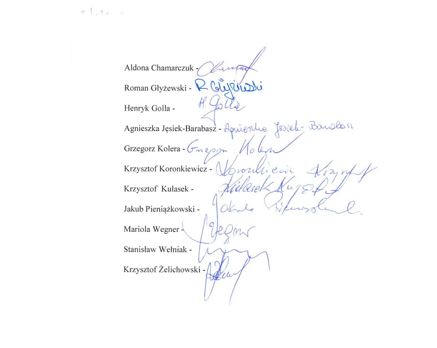 Aldona Chamarczuk -
Roman Glyżewski - R Glyżewski
Henryk Golla - H Golla
Agnieszka Jęsiek-Barabasz - Agnieszka Jęsiek-Barabasz
Grzegorz Kolera - Grzegorz Kolera
Krzysztof Koronkiewicz - Koronkiewicz Krzysztof
Krzysztof Kulasek - Kulasek Krzysztof
Jakub Pieniążkowski - Jakub Pieniążkowski
Mariola Wegner - Wegner
Stanisław Wełniak -
Krzysztof Żelichowski -